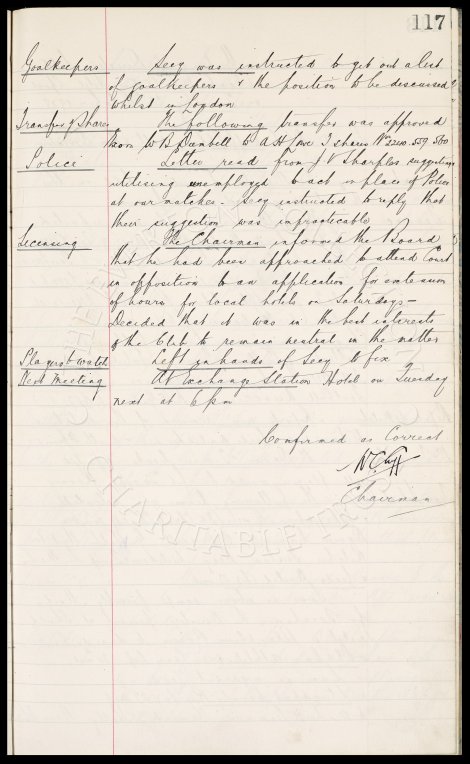 117
Goalkeepers Secy was instructed to get out a list
of goalkeepers & the position to be discussed
whilst in London
Transfer of Shares The following transfer was approved
from W B Dambell to A H Lowe 3 shares Nos 559. 560
Police Letter read from J V Sharples suggesting
utilising unemployed to act in place of Police
at our matches. Secy instructed to reply that
their suggestion was impracticable
Licensing The Chairman informed the Board
that he had been approached to attend Court
in opposition to an application for extension
of hours for local hotels on Saturdays -
Decided that it was in the best interests
of the Club to remain neutral in the matter
Players to watch Left in hands of Secy to fix
Next Meeting At Exchange Station Hotel on Tuesday
next at 6 pm
Confirmed as Correct
W.C. Cuff
Chairman
CHARITABLE TR